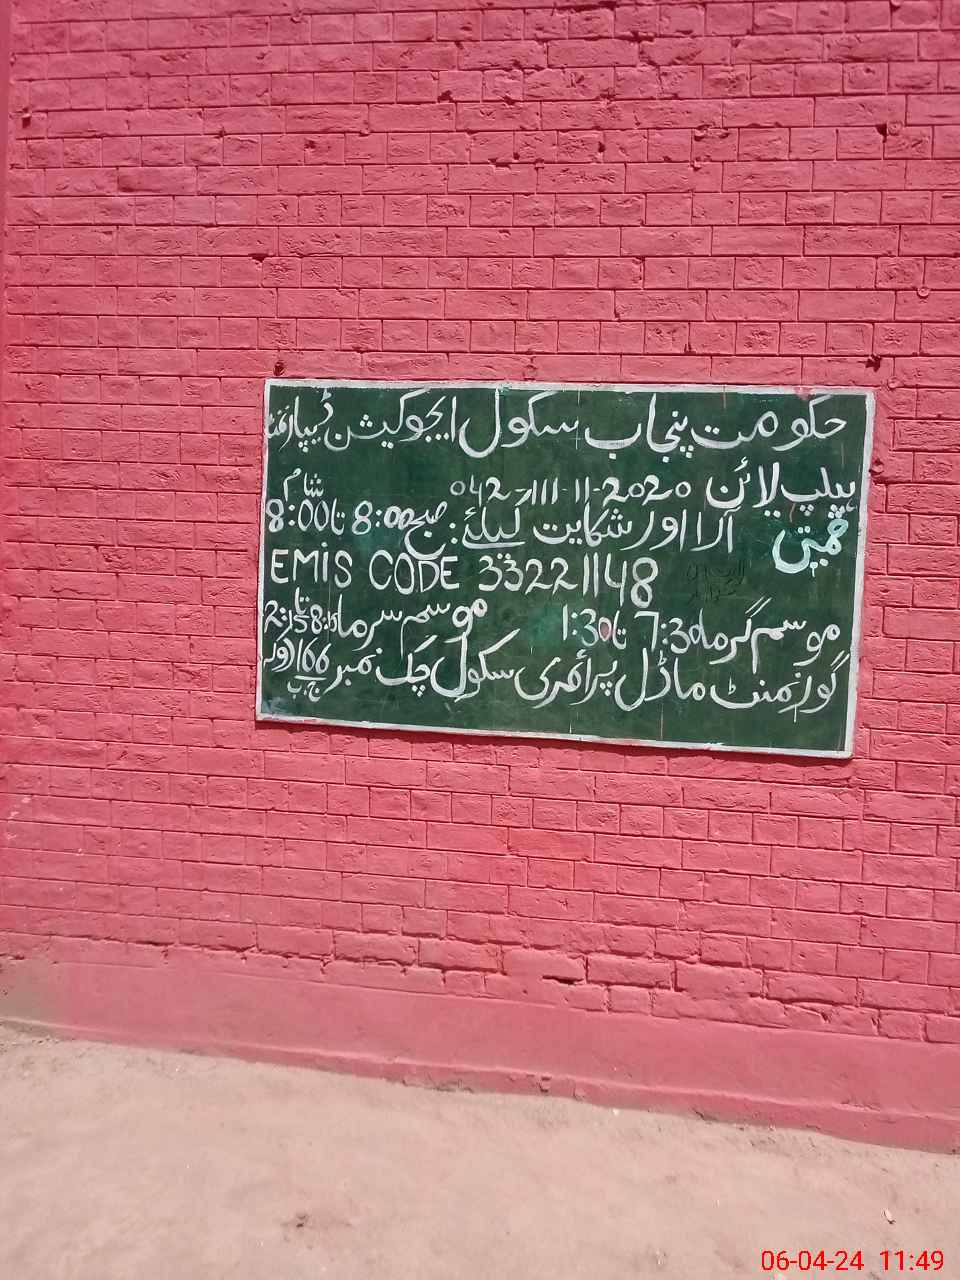 حکومت پنجاب سکول ایجوکیشن ڈیپارٹمنٹ
ہیلپ لائن 042-111-11-2020
قیمتی آرا اور شکایت کیلئے: صبح 8:00 تا 8:00 شام
EMIS CODE 33221148
موسم گرما 7:30 تا 1:30 موسم سرما 8:15 تا 2:15
گورنمنٹ ماڈل پرائمری سکول چک نمبر 166 ج.ب
06-04-24 11:49